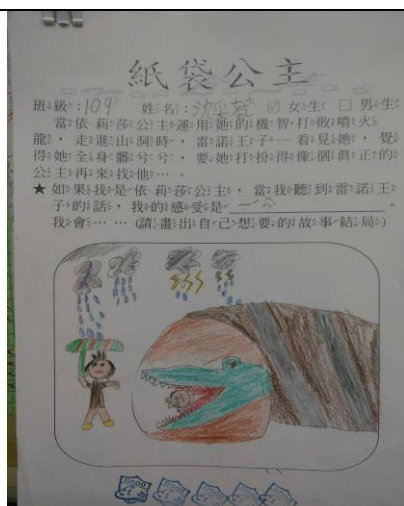 紙袋公主
班級:109 姓名: ☑女生 □男生
當依莉莎公主運用她的機智打敗噴火
龍,走進山洞時,雷諾王子一看見她,覺
得她全身髒兮兮,要她打扮得像個真正的
公主再來找他…。
★如果我是依莉莎公主,當我聽到雷諾王
子的話,我的感受是
我會……(請畫出自己想要的故事結局)